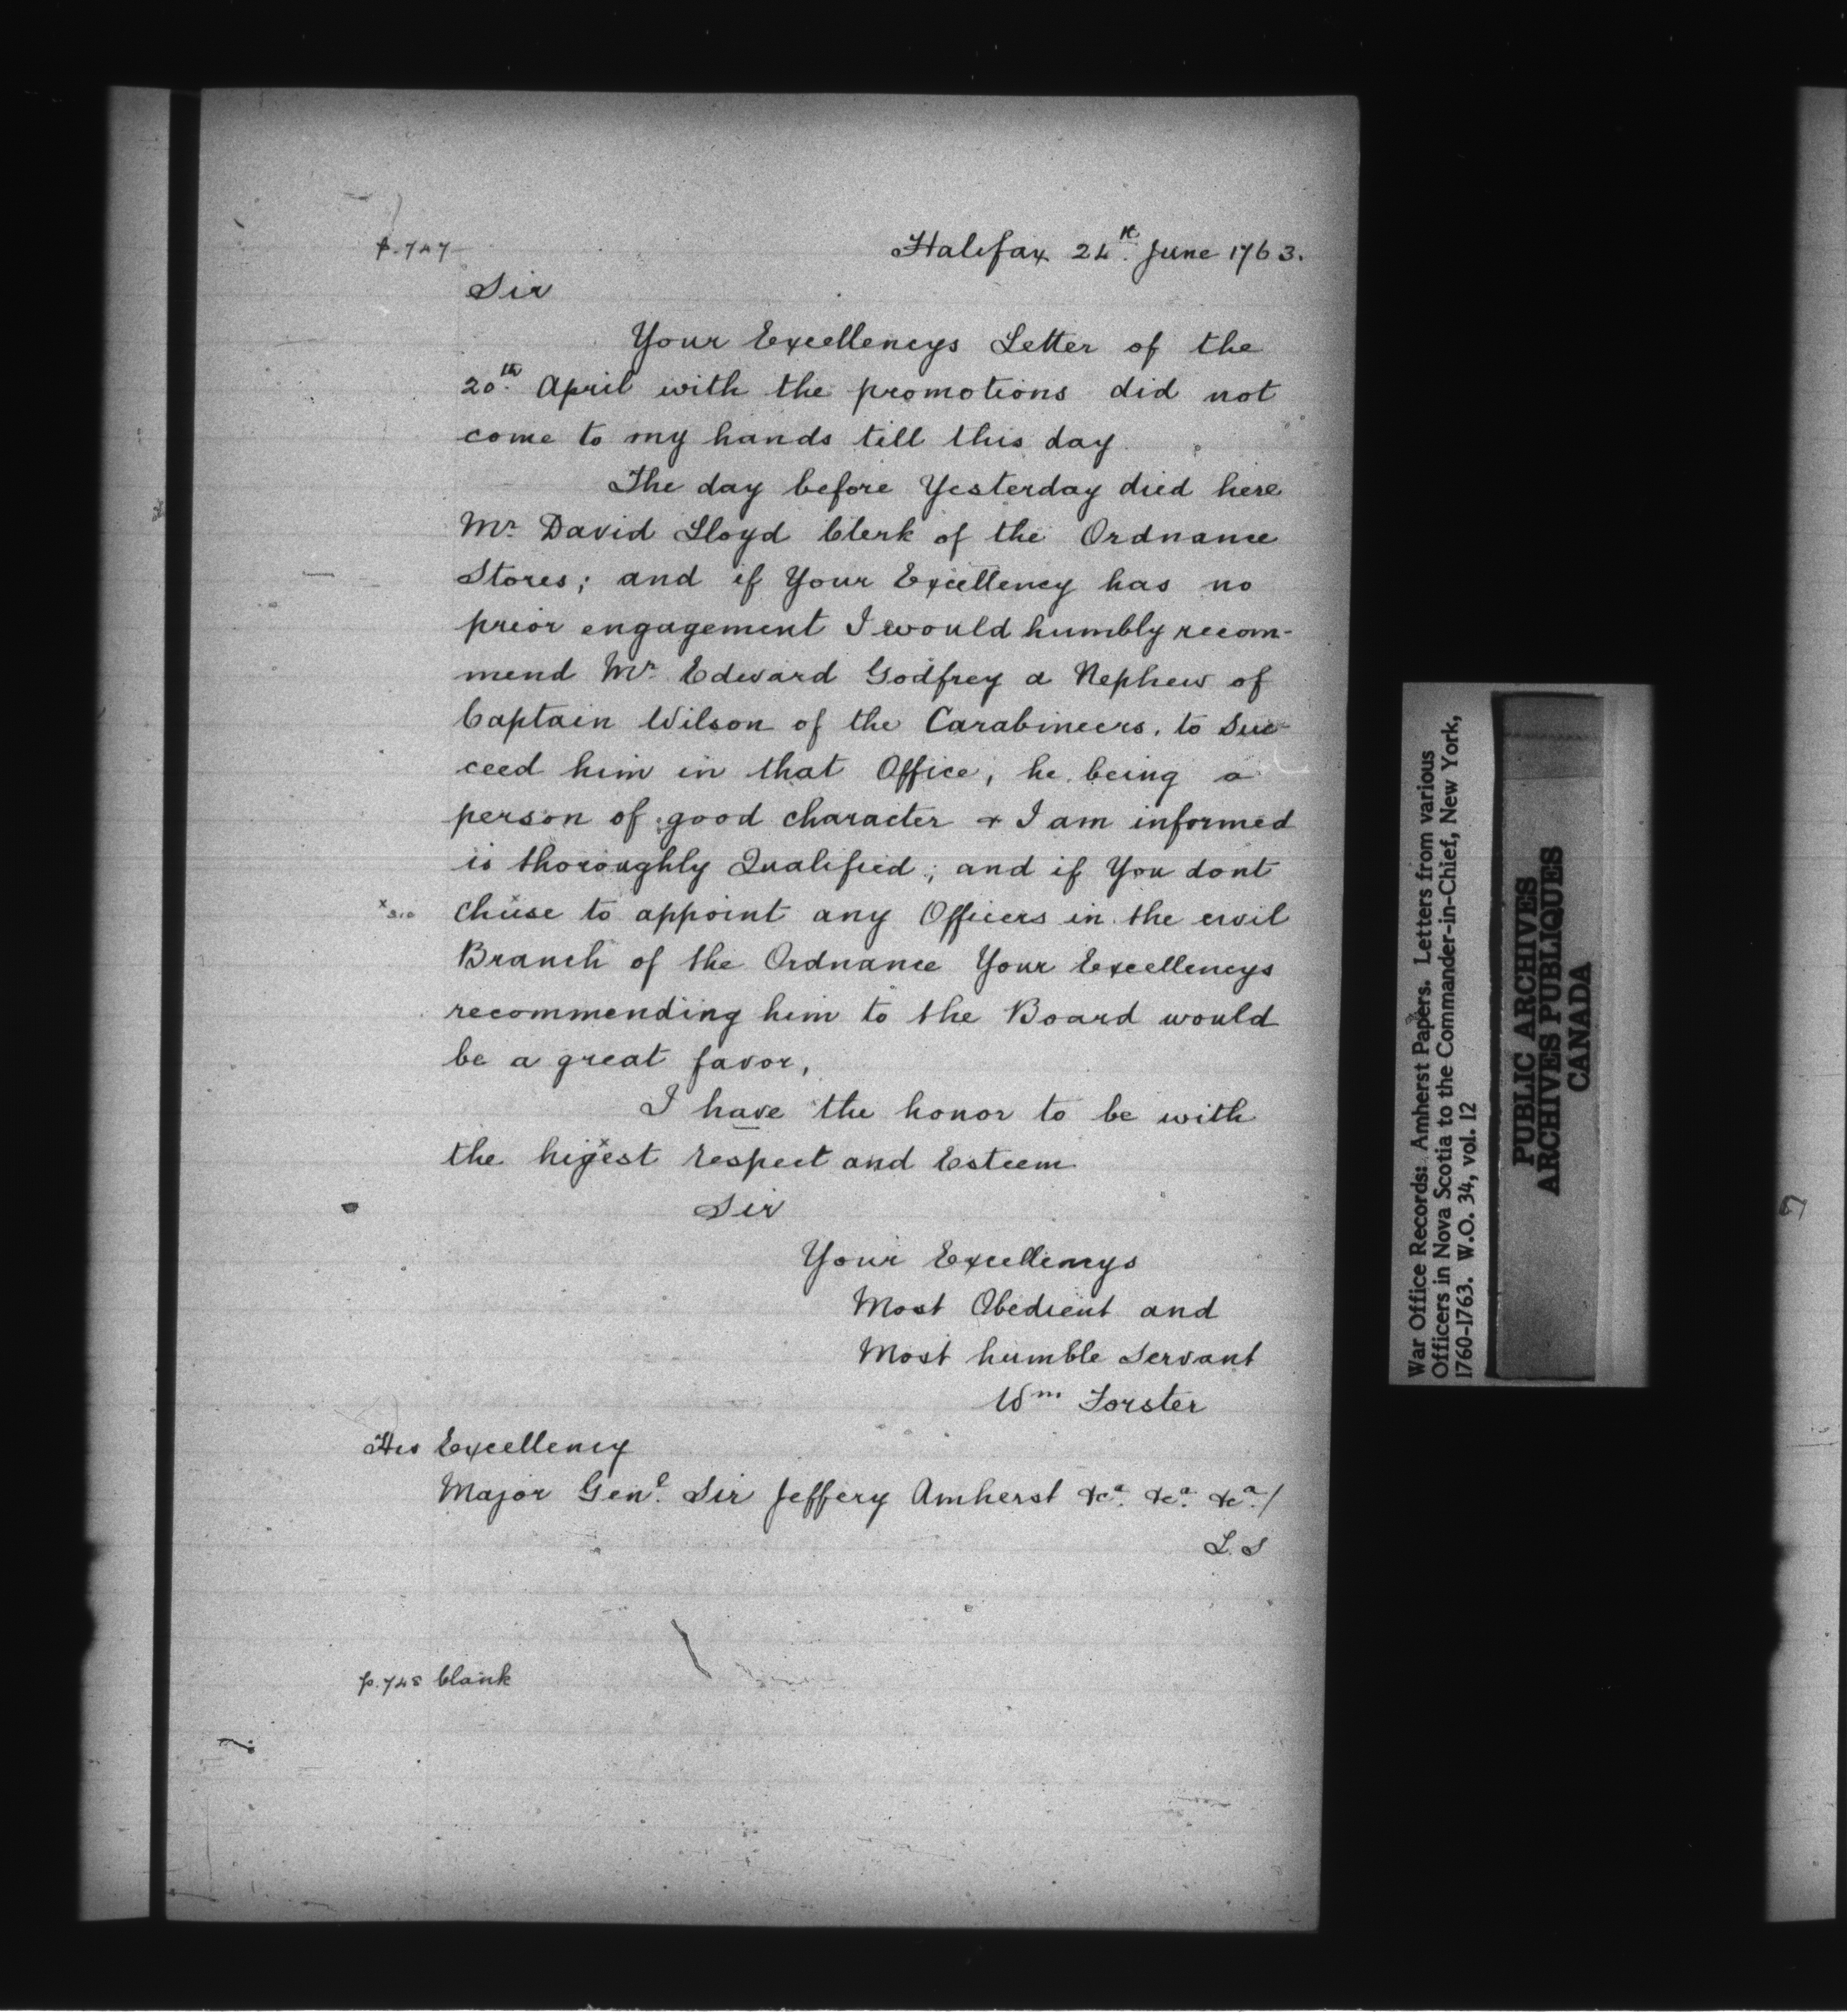 p. 747
Halifax 24th June 1763.
Sir
Your Excellencys Letter of the
20th April with the promotions did not
come to my hands till this day
The day before Yesterday died here
Mr David Lloyd Clerk of the Ordnance
Stores; and if Your Excellency has no
prior engagement I would humbly recom-
mend Mr Edward Godfrey a Nephew of
Captain Wilson of the Carabineers, to Suc-
ceed him in that Office, he being a
person of good character & I am informed
is thoroughly Qualified; and if You dont
x sic chuse to appoint any Officers in the civil
Branch of the Ordnance Your Excellencys
recommending him to the Board would
be a great favor,
I have the honor to be with
the higest respect and Esteem
Sir
Your Excellencys
Most Obedient and
Most humble Servant
Wm Forster
His Excellency
Major Genl. Sir Jeffery Amherst &ca. &ca. &ca./
L.S
p. 748 blank
War Office Records: Amherst Papers. Letters from various
Officers in Nova Scotia to the Commander-in-Chief, New York,
1760-1763. W.O. 34, vol. 12
PUBLIC ARCHIVES
ARCHIVES PUBLIQUES
CANADA